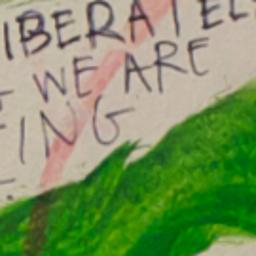 IBERATEL
WE ARE
ING